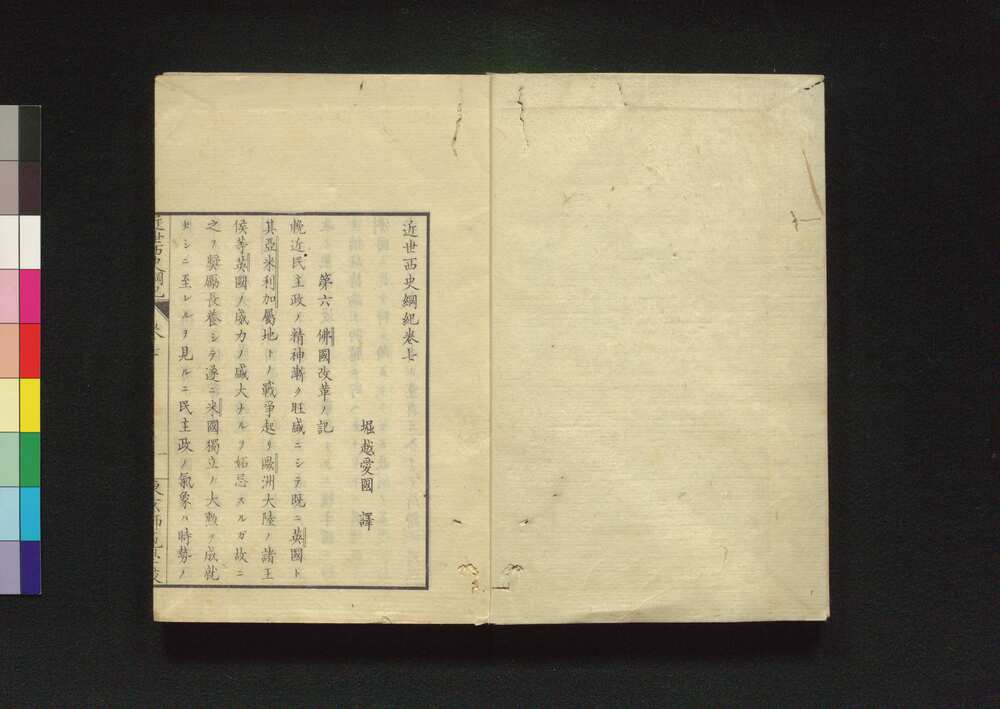 近世西史綱紀卷七
堀越愛國 譯
第六 佛國改革ノ記
輓近民主政ノ精神漸ク旺盛ニシテ既ニ英國ト
其亞米利加屬地トノ戰爭起リ歐洲大陸ノ諸王
侯等英國ノ威力ノ盛大ナルヲ妬忌スルガ故ニ
之ヲ奬勵長養シテ遂ニ米國獨立ノ大勲ヲ成就
セシニ至レルヲ見ルニ民主政ノ氣象ハ時勢ノ
近世西史綱紀